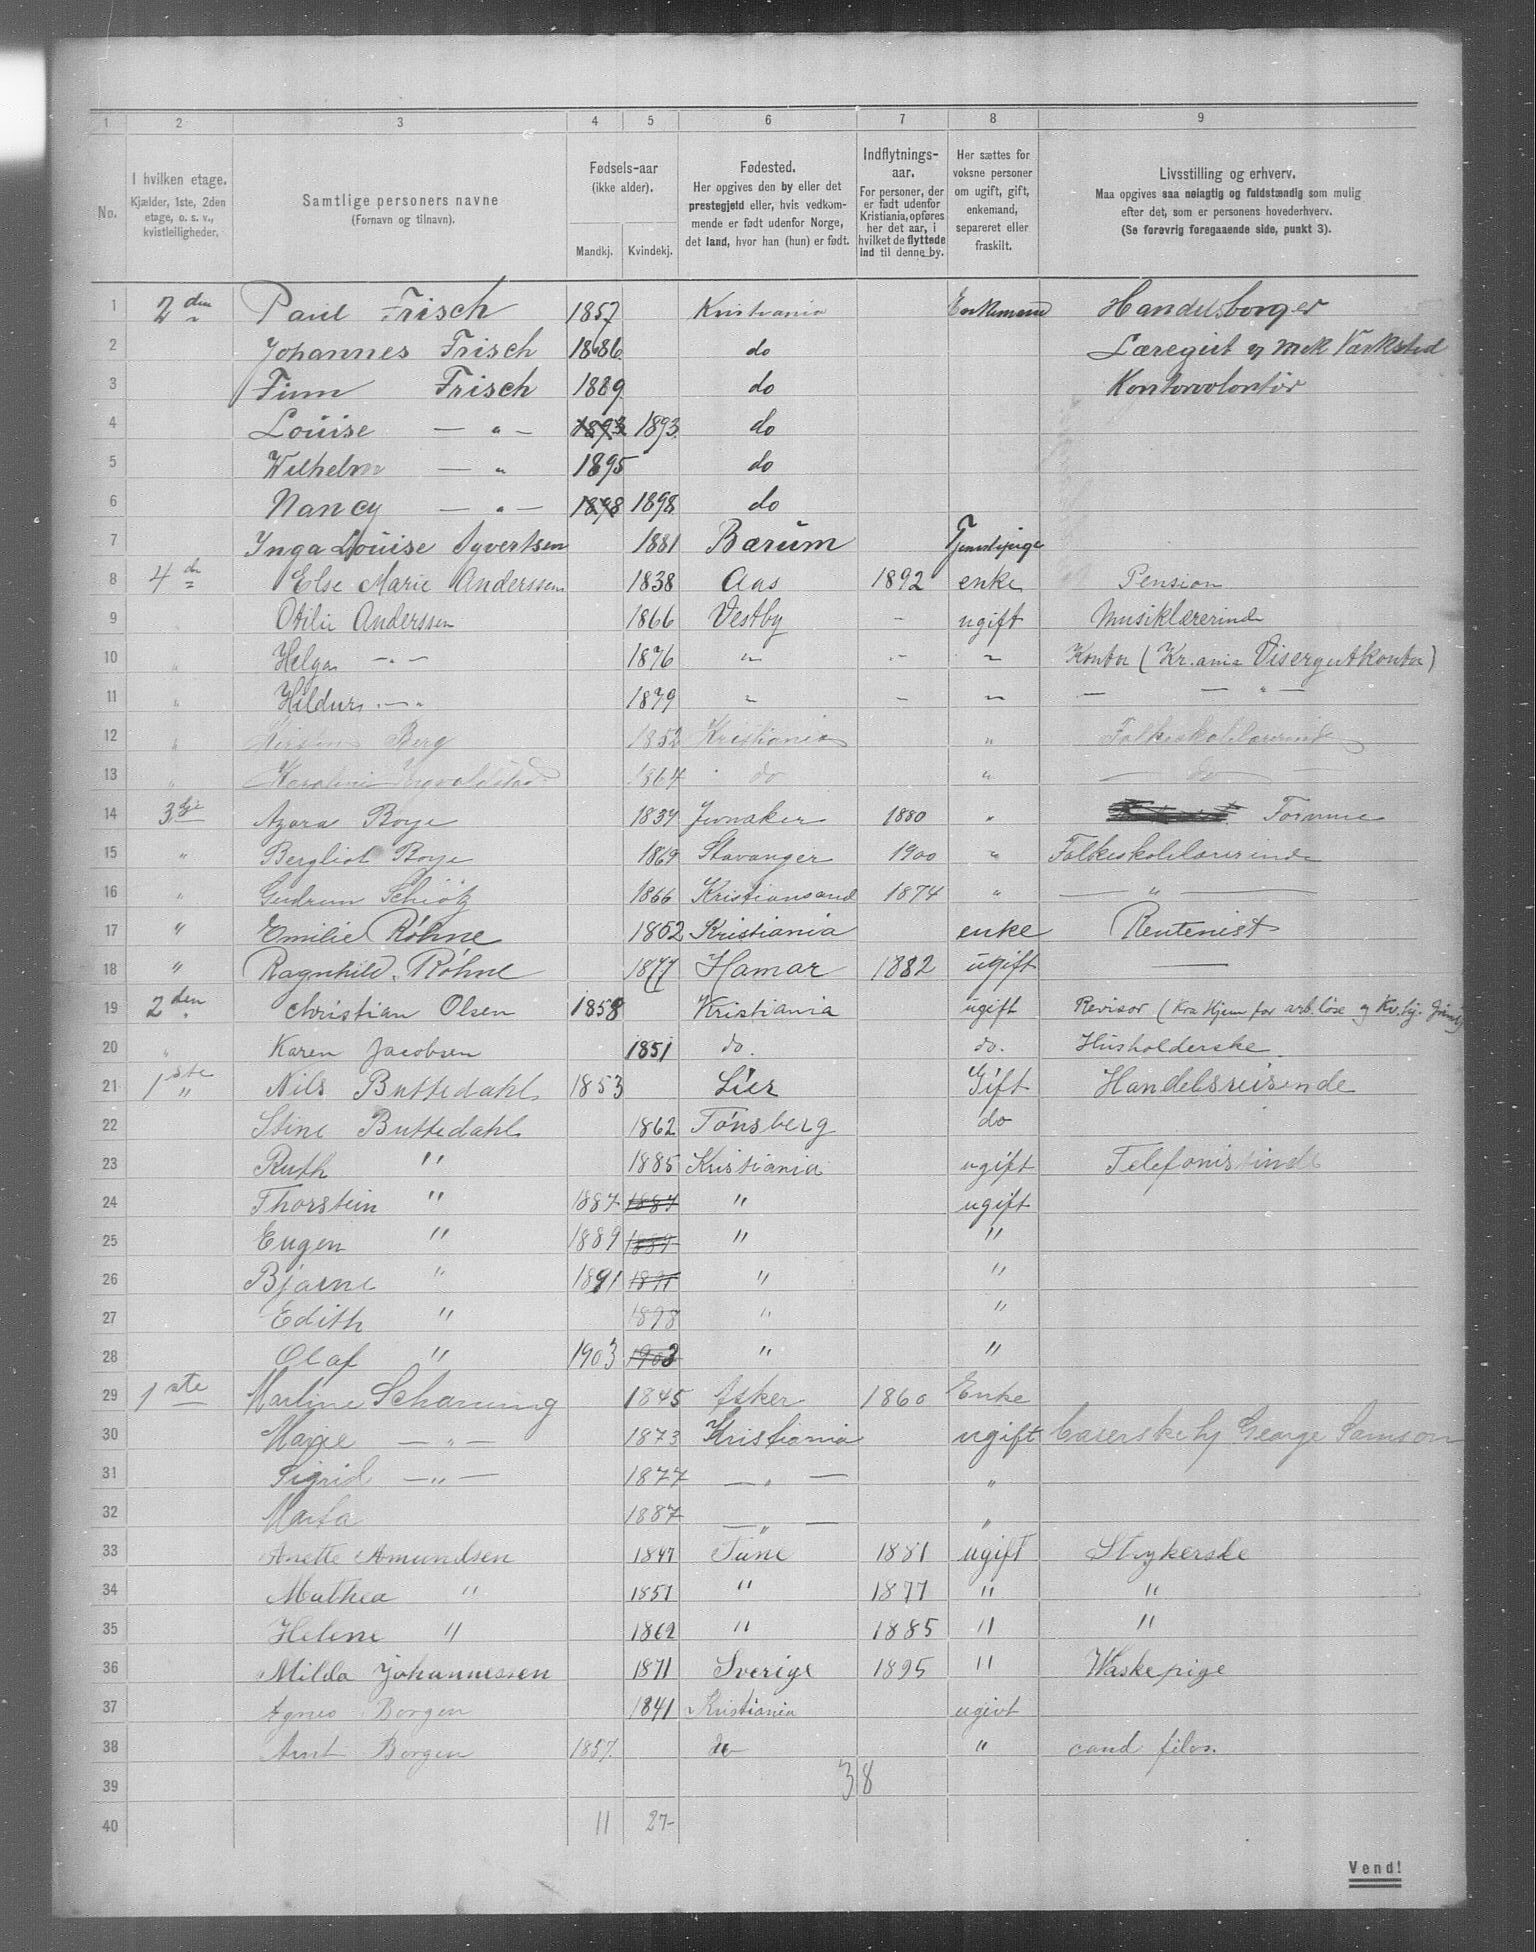 1 2 3 4 5 6 7 8 9
No.
I hvilken etage.
Kjælder, 1ste, 2den
etage, o. s. v.,
kvistleiligheder.
Samtlige personers navne
(Fornavn og tilnavn).
Fødsels-aar
(ikke alder).
Mandkj. Kvindekj.
Fødested.
Her opgives den by eller det
prestegjeld eller, hvis vedkom-
mende er født udenfor Norge,
det land, hvor han (hun) er født.
Indflytnings-
aar.
For personer, der
er født udenfor
Kristiania, opføres
her det aar, i
hvilket de flyttede
ind til denne by.
Her sættes for
voksne personer
om ugift, gift,
enkemand,
separeret eller
fraskilt.
Livsstilling og erhverv.
Maa opgives saa nøiagtig og fuldstændig som mulig
efter det, som er personens hovederhverv.
(Se forøvrig foregaaende side, punkt 3).
1 2den Paul Frisch 1857 Kristiania Enkemand Handelsborger
2 Johannes Frisch 1886 do Læregut v mek Værksted
3 Finn Frisch 1889 do Kontorvolontør
4 Louise — " — 1893 1893 do
5 Wilhelm — " 1895 do
6 Nancy — " — 1898 1898 do
7 Inga Louise Syvertsen 1881 Bærum Tjenestepige
8 4de Else Marie Anderssen 1838 Aas 1892 enke Pension
9 Otilie Anderssen 1866 Vestby - ugift Musiklærerinde
10 " Helga — " — 1876 " " " Kontor (Kr.ania Visergutkontor)
11 " Hildur — " 1879 " - " — — " —
12 " Kirsten Berg 1852 Kristiania " Folkeskolelærerinde
13 " 1864 do " — do —
14 3die Azora Boye 1839 Jevnaker 1880 "
15 " Bergliot Boye 1869 Stavanger 1900 " Folkeskolelærerinde
16 " Gudrun Schiötz 1866 Kristiansand 1874 " — " —
17 " Emilie Röhne 1852 Kristiania enke Rentenist
18 " Ragnhild Röhne 1877 Hamar 1882 ugift —
19 2den Christian Olsen 1858 Kristiania ugift Revisor (Kra Hjem for arb.løse og
20 " Karen Jacobsen 1851 do. do. Husholderske.
21 1ste " Nils Buttedahl 1853 Lier Gift Handelsreisende
22 Stine Buttedahl 1862 Tönsberg do
23 Ruth " 1885 Kristiania ugift Telefonistinde
24 Thorstein " 1887 1887 " ugift
25 Eugen " 1889 1889 " "
26 Bjarne " 1891 1891 " "
27 Edith " 1898 " "
28 Olaf " 1903 1903 " "
29 1ste Martine Schanning 1845 Asker 1860 Enke
30 Marie — " — 1873 Kristiania ugift Caserske hj George Samson
31 Sigrid — " — 1877 — " — "
32 Marta 1887 — " — "
33 Anette Amundsen 1847 Tune 1881 ugift Strykerske
34 Mathea " 1857 " 1877 " "
35 Helene " 1862 " 1885 " "
36 Milda Johannessen 1871 Sverige 1895 " Waskepige
37 Agnes Borgen 1841 Kristiania ugivt
38 Arnt Borgen 1857. do " cand filos.
39 38
40 11 27-
Vend!